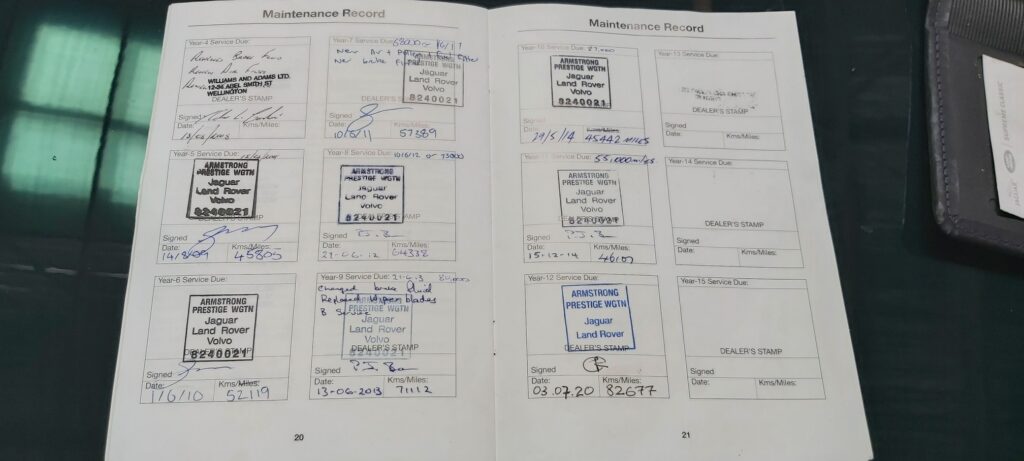 Maintenance Record
Year-4 Service Due:
WILLIAMS AND ADAMS LTD.
WELLINGTON
DEALER'S STAMP
Signed
Date:
Kms/Miles:
Year-5 Service Due:
ARMSTRONG
PRESTIGE WGTN
Jaguar
Land Rover
Volvo
8240021
DEALER'S STAMP
Signed
Date:
Kms/Miles:
14/8/09
45805
Year-6 Service Due:
ARMSTRONG
PRESTIGE WGTN
Jaguar
Land Rover
Volvo
8240021
DEALER'S STAMP
Signed
Date:
Kms/Miles:
1/6/10
52119
Year-7 Service Due:
ARMSTRONG
PRESTIGE WGTN
Jaguar
Land Rover
Volvo
8240021
DEALER'S STAMP
Signed
Date:
Kms/Miles:
10/5/11
57389
Year-8 Service Due:
ARMSTRONG
PRESTIGE WGTN
Jaguar
Land Rover
Volvo
8240021
DEALER'S STAMP
Signed
Date:
Kms/Miles:
64338
Year-9 Service Due:
Changed brake fluid
Replaced wiper blades
ARMSTRONG
PRESTIGE WGTN
Jaguar
Land Rover
Volvo
8240021
DEALER'S STAMP
Signed
Date:
Kms/Miles:
13-06-2013
71112
20
Maintenance Record
Year-10 Service Due:
ARMSTRONG
PRESTIGE WGTN
Jaguar
Land Rover
Volvo
8240021
DEALER'S STAMP
Signed
Date:
Kms/Miles:
29/5/14
45442 MILES
Service Due: 55,000 miles
ARMSTRONG
PRESTIGE WGTN
Jaguar
Land Rover
Volvo
8240021
DEALER'S STAMP
Signed
Date:
Kms/Miles:
15-12-14
Year-12 Service Due:
ARMSTRONG
PRESTIGE WGTN
Jaguar
Land Rover
DEALER'S STAMP
Signed
Date:
Kms/Miles:
03.07.20
82677
Year-13 Service Due:
DEALER'S STAMP
Signed
Date:
Kms/Miles:
Year-14 Service Due:
DEALER'S STAMP
Signed
Date:
Kms/Miles:
Year-15 Service Due:
DEALER'S STAMP
Signed
Date:
Kms/Miles:
21